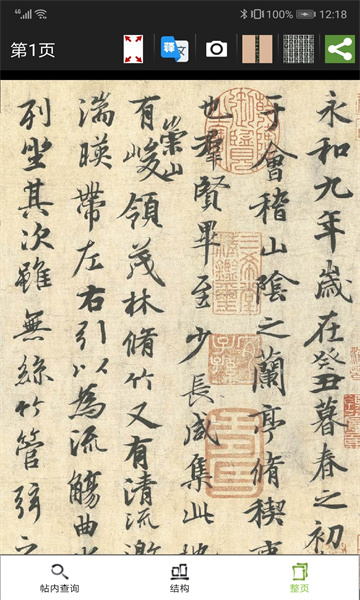 100% 12:18
第1页
译 文
永和九年歲在癸丑暮春之初
于會稽山陰之蘭亭脩禊事
也羣賢畢至少長咸集此地
有崇山峻領茂林脩竹又有清流激
湍暎帶左右引以為流觴曲水
列坐其次雖無絲竹管弦之
帖内查询 结构 整页